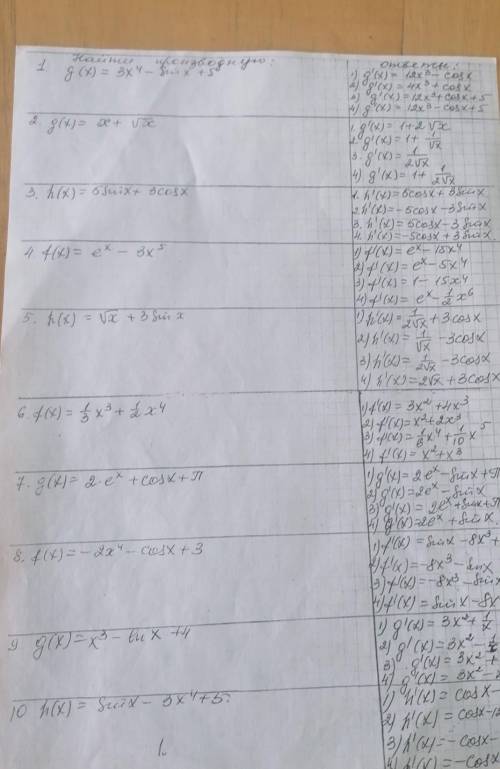 Найти производную:
ответы:
1. g(x) = 3x⁴ – sinx + 5
1) g'(x) = 12x³ – cosx
2) g'(x) = 4x³ + cosx
3) g'(x) = 12x³ + cosx + 5
4) g'(x) = 12x³ – cosx + 5
2. g(x) = x + √x
1. g'(x) = 1 + 2√x
2. g'(x) = 1 + 1/√x
3. g'(x) = 1/2√x
4) g'(x) = 1 + 1/2√x
3. h(x) = 5sinx + 3cosx
1. h'(x) = 5cosx + 3sinx
2. h'(x) = –5cosx – 3sinx
3. h'(x) = 5cosx – 3sinx
4. h'(x) = –5cosx + 3sinx
4. f(x) = eˣ – 3x⁵
1) f'(x) = eˣ – 15x⁴
2) f'(x) = eˣ – 5x⁴
3) f'(x) = 1 – 15x⁴
4) f'(x) = eˣ – 1/2 x⁶
5. h(x) = √x + 3sinx
1) h'(x) = 1/2√x + 3cosx
2) h'(x) = 1/√x – 3cosx
3) h'(x) = 1/2√x – 3cosx
4) h'(x) = 2√x + 3cosx
6. f(x) = 1/3 x³ + 1/2 x⁴
1) f'(x) = 3x² + 4x³
2) f'(x) = x² + 2x³
3) f'(x) = 1/3 x⁴ + 1/10 x⁵
4) f'(x) = x² + x³
7. g(x) = 2·eˣ + cosx + π
1) g'(x) = 2eˣ – sinx + π
2) g'(x) = 2eˣ – sinx
3) g'(x) = 2eˣ + sinx + π
4) g'(x) = 2eˣ + sinx
8. f(x) = –2x⁴ – cosx + 3
1) f'(x) = sinx – 8x³ +
2) f'(x) = –8x³ – sinx
3) f'(x) = –8x³ – sinx
4) f'(x) = sinx – 8x
9 g(x) = x³ – lnx + 4
1) g'(x) = 3x² + 1/x
2) g'(x) = 3x² –
3) g'(x) = 3x² +
4) g'(x) = 3x² –
10 h(x) = sinx – 3x⁴ + 5.
1) h'(x) = cosx –
2) h'(x) = cosx – 12
3) h'(x) = –cosx –
4) h'(x) = –cosx